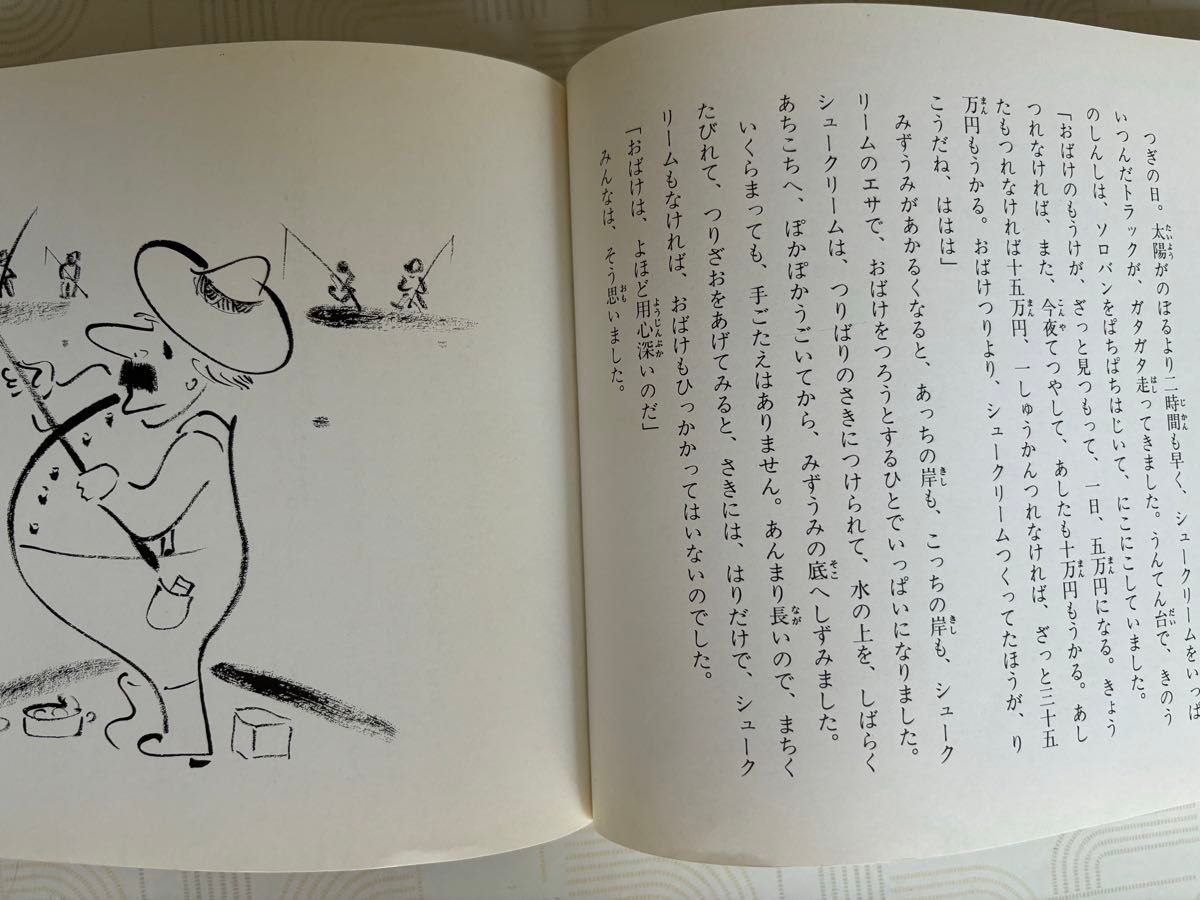 つぎの日。太陽がのぼるより二時間も早く、シュークリームをいっぱ
いつんだトラックが、ガタガタ走ってきました。うんてん台で、きのう
のしんしは、ソロバンをぱちぱちはじいて、にこにこしていました。
「おばけのもうけが、ざっと見つもって、一日、五万円になる。きょう
つれなければ、また、今夜てつやして、あしたも十万円もうかる。あし
たもつれなければ十五万円、一しゅうかんつれなければ、ざっと三十五
万円もうかる。おばけつりより、シュークリームつくってたほうが、り
こうだね、ははは」
みずうみがあかるくなると、あっちの岸も、こっちの岸も、シューク
リームのエサで、おばけをつろうとするひとでいっぱいになりました。
シュークリームは、つりばりのさきにつけられて、水の上を、しばらく
あちこちへ、ぽかぽかうごいてから、みずうみの底へしずみました。
いくらまっても、手ごたえはありません。あんまり長いので、まちく
たびれて、つりざおをあげてみると、さきには、はりだけで、シューク
リームもなければ、おばけもひっかかってはいないのでした。
「おばけは、よほど用心深いのだ」
みんなは、そう思いました。